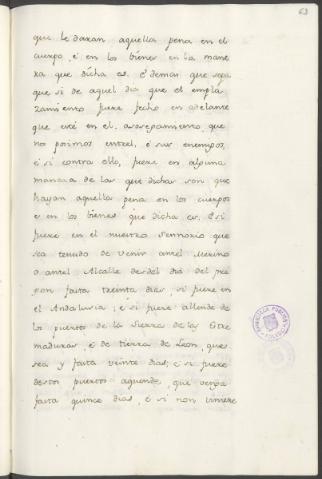 63
que le daran aquella pena en el
cuerpo, é en los bienes en la mane
ra que dicha es. É demas que sepa
que si de aquel dia que el empla
zamiento fuere fecho en adelante
que esté en el. asosegamiento, que
nos posimos entrel, é sus enemigos,
é si contra ello, fuere en alguna
manera de las que dichas son que
hayan aquella pena en los cuerpos
e en los bienes que dicha es. É si
fuere en el nuestro Sennorio que
sea tenudo de venir antel Merino
o antel Alcalle desdel dia del pre
gon fasta treinta dias, si fuere en
el Andalusia; é si fuere allende de
los puertos de la Sierra de las Estre
maduras é de tierra de Leon, que
sea y fasta veinte dias; é si fuere
destos puertos aquende, que venga
fasta quince dias, é si non viniere
BIBLIOTECA PUBLICA
TOLEDO